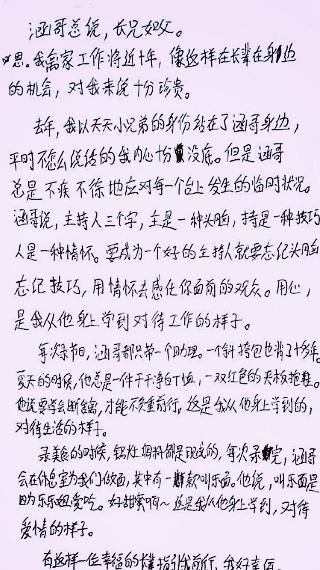 涵哥总说，长兄如父。
思。我离家工作将近十年，像这样在长辈在身边
的机会，对我来说十分珍贵。
去年，我以天天小兄弟的身份站在了涵哥身边，
平时不怎么说话的我内心十分没底。但是涵哥
总是不疾不徐地应对每一个台上发生的临时状况。
涵哥说，主持人三个字，主是一种头脑，持是一种技巧
人是一种情怀。要成为一个好的主持人就要忘记头脑
忘记技巧，用情怀去感任你面前的观众。用心，
是我从他身上学到对待工作的样子。
每次录节目，涵哥都只带一个助理。一个斜挎包也背了十多年。
夏天的时候，他总是一件干干净的T恤，一双红色的天板拖鞋。
他说要学会断舍离，才能不负重前行，这是我从他身上学到的，
对待生活的样子。
录美食的时候，锅灶焖料都是现成的，每次录完，涵哥
会在休息室为我们做面，其中有一款叫乐面。他说，叫乐面是
因为乐乐姐爱吃。好甜蜜啊~这是我从他身上学到，对待
爱情的样子。
有这样一位幸福的长辈指引我前行，我好幸福